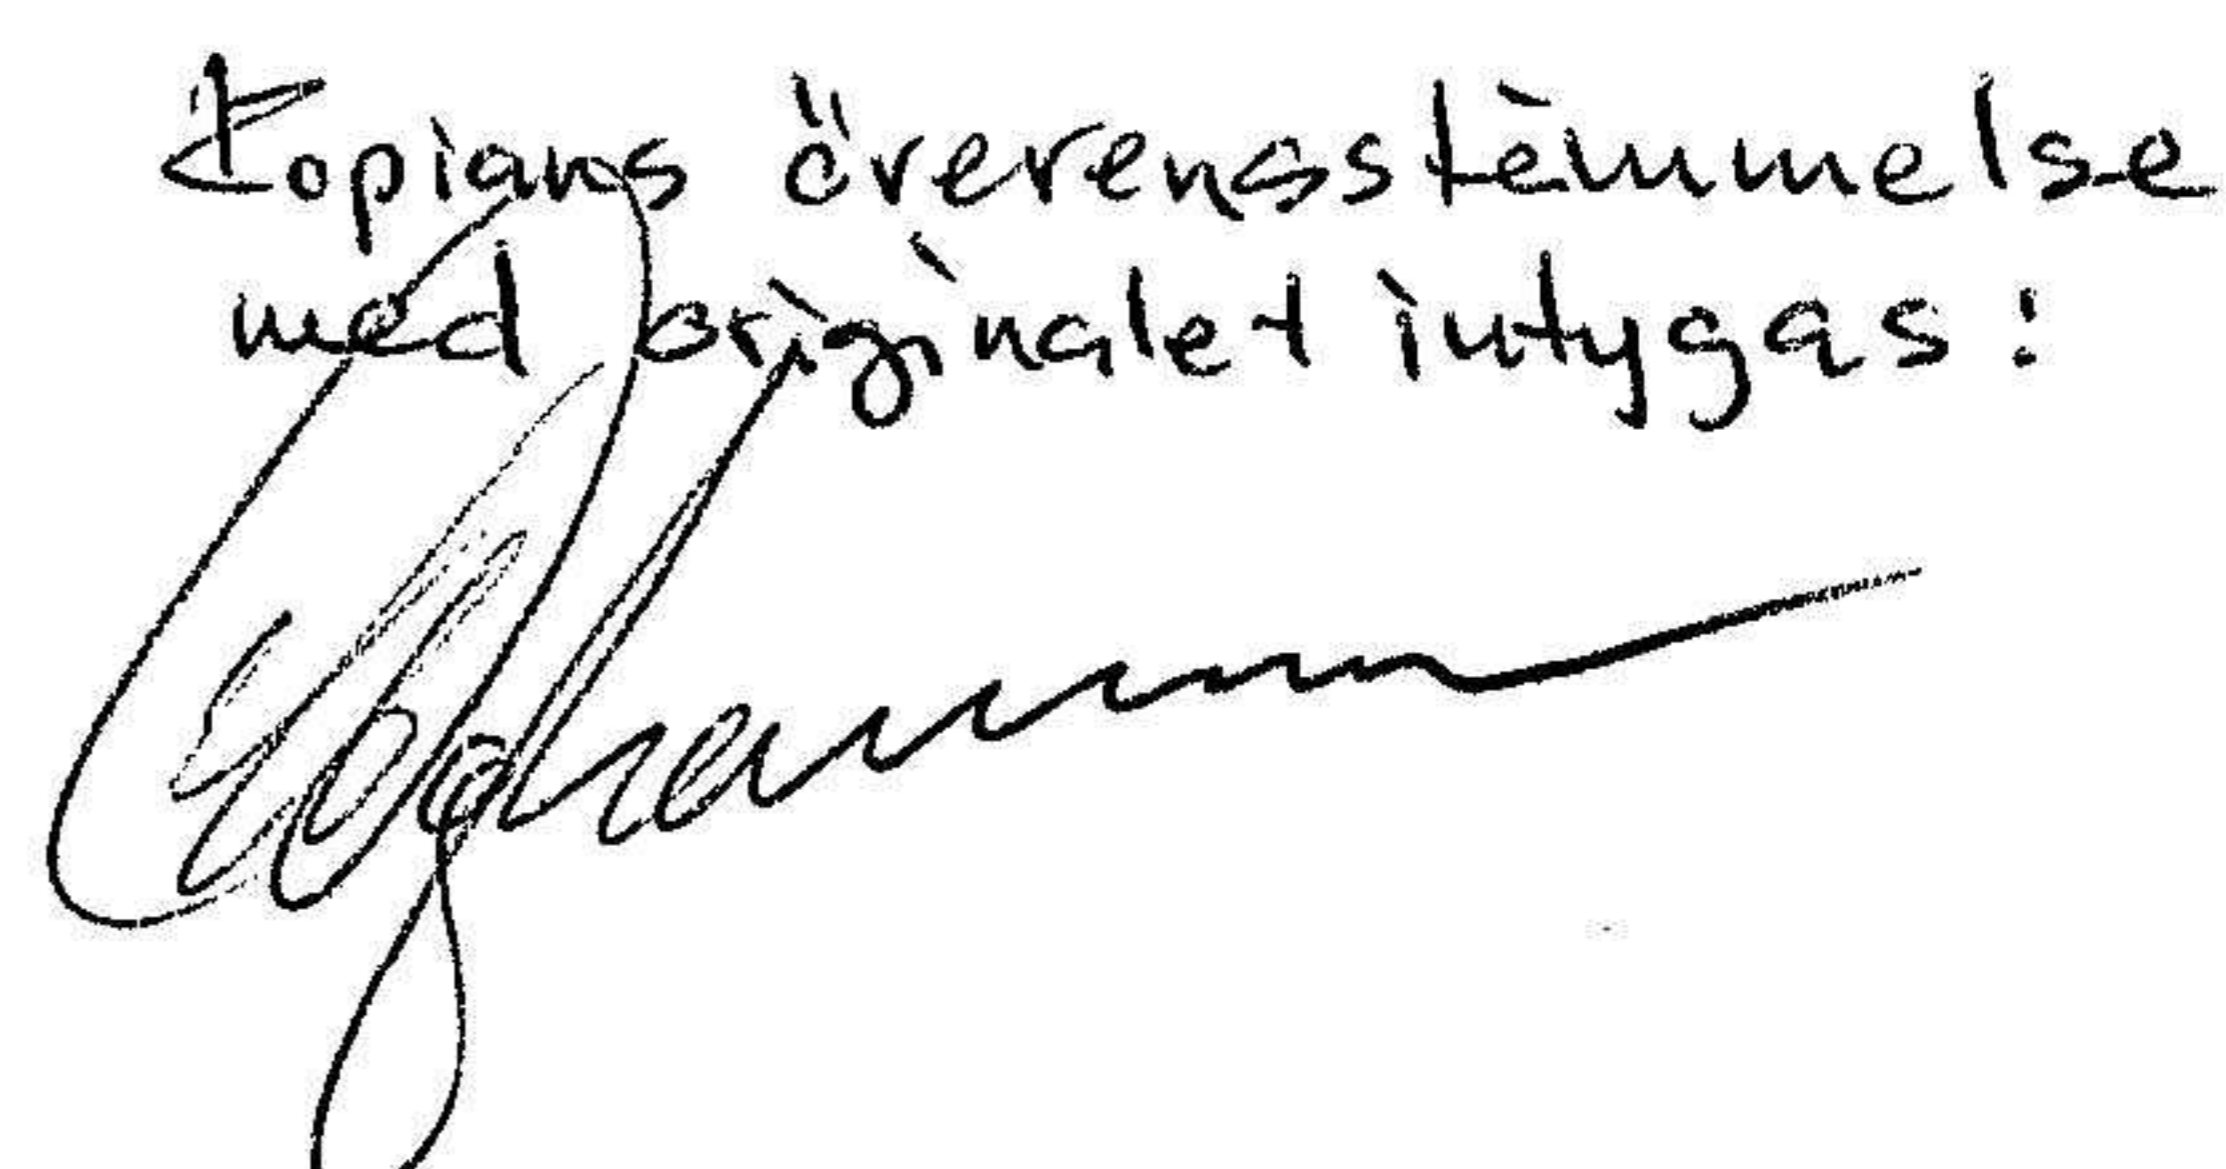 Kopians överensstemmelse
med originalet intygas: